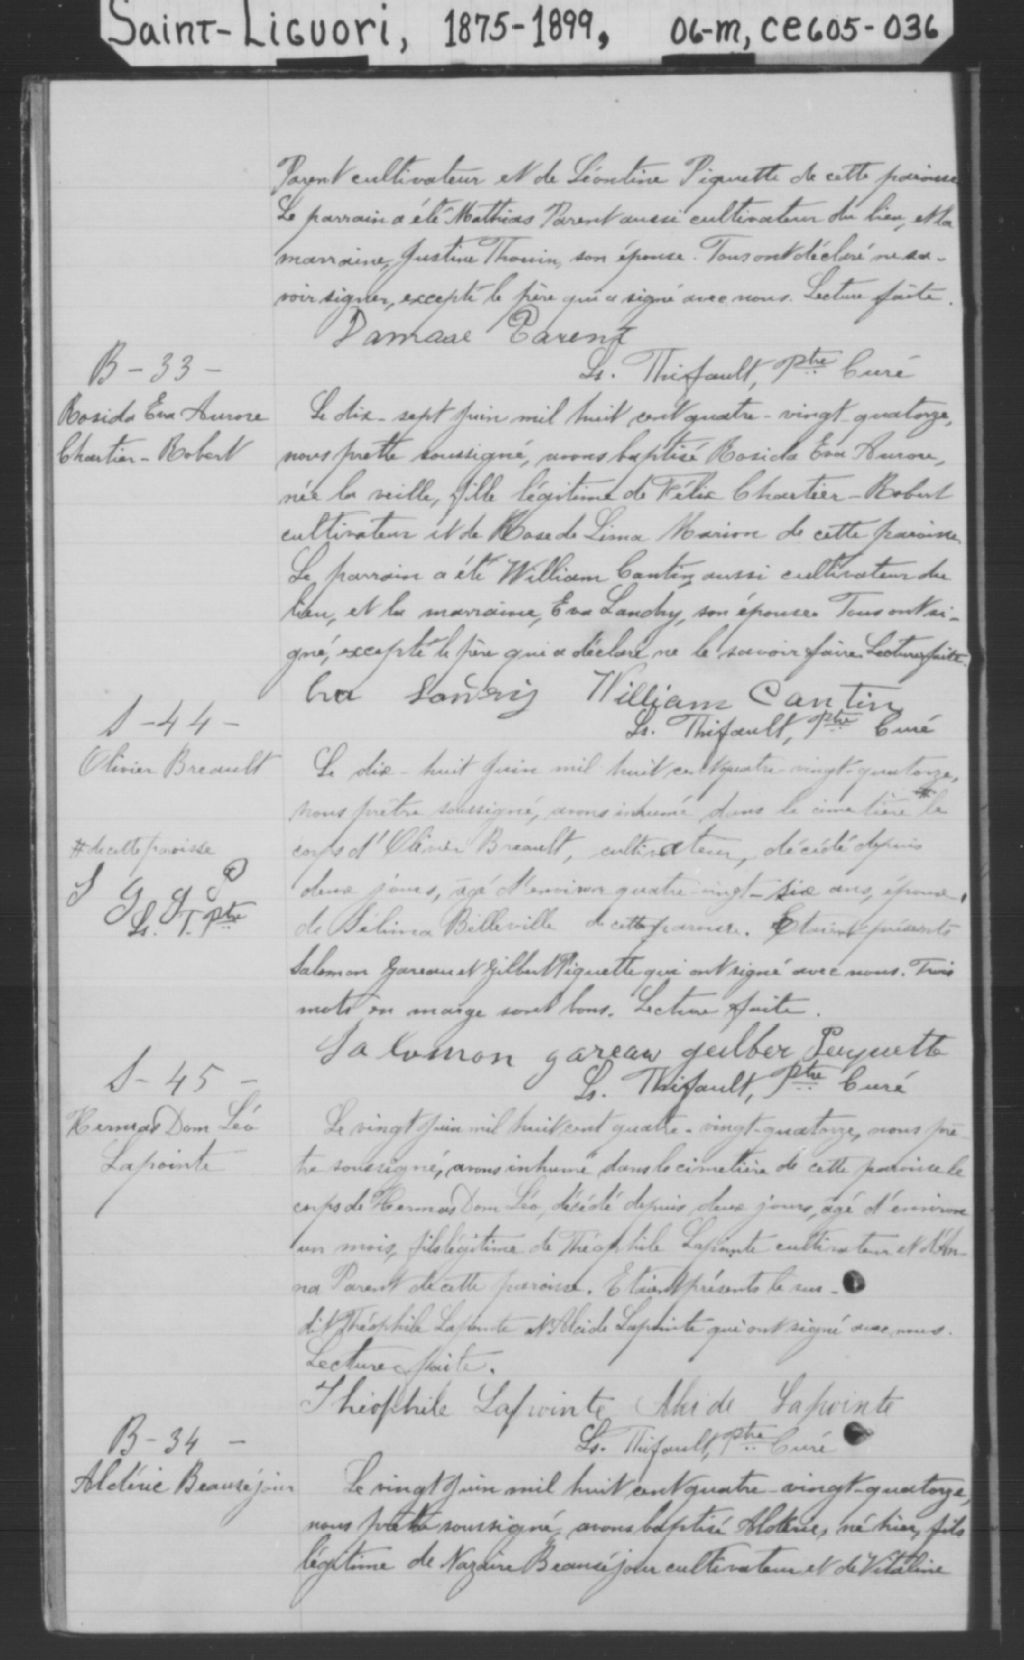 Saint-Liguori, 1875-1899, 06-m, ce605-036
Parent cultivateur et de Léontine Piquette de cette paroisse
Le parrain a été Mathias Parent aussi cultivateur du lieu, et la
marraine, Justine Thouin, son épouse. Tous ont déclaré ne sa-
voir signer, excepté le père qui a signé avec nous. Lecture faite.
Damase Parent
Ls. Thifault, Ptre Curé
B-33-
Rosida Eva Aurore
Chartier-Robert
Le dix-sept Juin mil huit cent quatre-vingt-quatorze,
nous prêtre soussigné, avons baptisé Rosida Eva Aurore,
née la veille, fille légitime de Félix Chartier-Robert
cultivateur et de Rose de Lima Marion de cette paroisse.
Le parrain a été William Cantin, aussi cultivateur du
lieu, et la marraine, Eva Landry, son épouse. Tous ont si-
gné, excepté le père qui a déclaré ne le savoir faire. Lecture faite.
Eva Landry William Cantin
Ls. Thifault, Ptre Curé
S-44-
Olivier Breault
Le dix-huit Juin mil huit cent quatre-vingt-quatorze,
nous prêtre soussigné, avons inhumé dans le cimetière # le
corps d'Olivier Breault, cultivateur, décédé depuis
deux jours, âgé d'environ quatre-vingt-six ans, époux
de Sélima Belleville de cette paroisse. Etaient présents
Salomon Gareau et Gilbert Piquette qui ont signé avec nous. Trois
mots en marge sont bons. Lecture faite.
# de cette paroisse
S G G P
Ls. T. Ptre
Salomon gareau guilber Piquette
Ls. Thifault, Ptre Curé
S-45-
Hermas Dom Léo
Lapointe
Le vingt Juin mil huit cent quatre-vingt-quatorze, nous prê-
tre soussigné, avons inhumé dans le cimetière de cette paroisse le
corps de Hermas Dom Léo, décédé depuis deux jours, âgé d'environ
un mois, fils légitime de Théophile Lapointe cultivateur et d'An-
na Parent de cette paroisse. Etaient présents le sus-
dit Théophile Lapointe et Alcide Lapointe qui ont signé avec nous.
Lecture faite.
Théophile Lapointe Alcide Lapointe
Ls. Thifault, Ptre Curé
B-34-
Aldéric Beauséjour
Le vingt Juin mil huit cent quatre-vingt-quatorze,
nous prêtre soussigné, avons baptisé Aldéric, né hier, fils
légitime de Nazaire Beauséjour cultivateur et de Vitaline